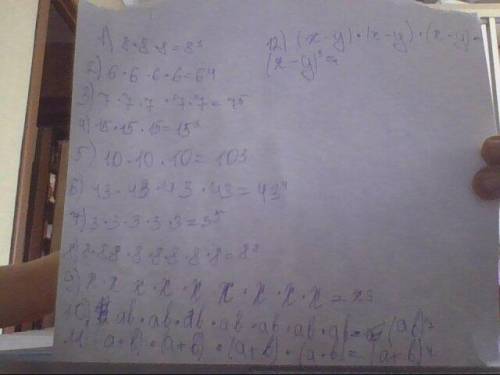 1) 8·8·8=8³
2) 6·6·6·6=6⁴
3) 7·7·7·7·7=7⁵
4) 15·15·15=15³
5) 10·10·10=10³
6) 43·43·43·43=43⁴
7) 3·3·3·3·3=3⁵
8) 8·8·8·8·8·8·8·8=8⁸
9) x·x·x·x·x·x·x·x·x=x⁹
10) ab·ab·ab·ab·ab·ab·ab=(ab)⁷
11. (a+b)·(a+b)·(a+b)·(a+b)=(a+b)⁴
12) (x-y)·(x-y)·(x-y)=
(x-y)³=